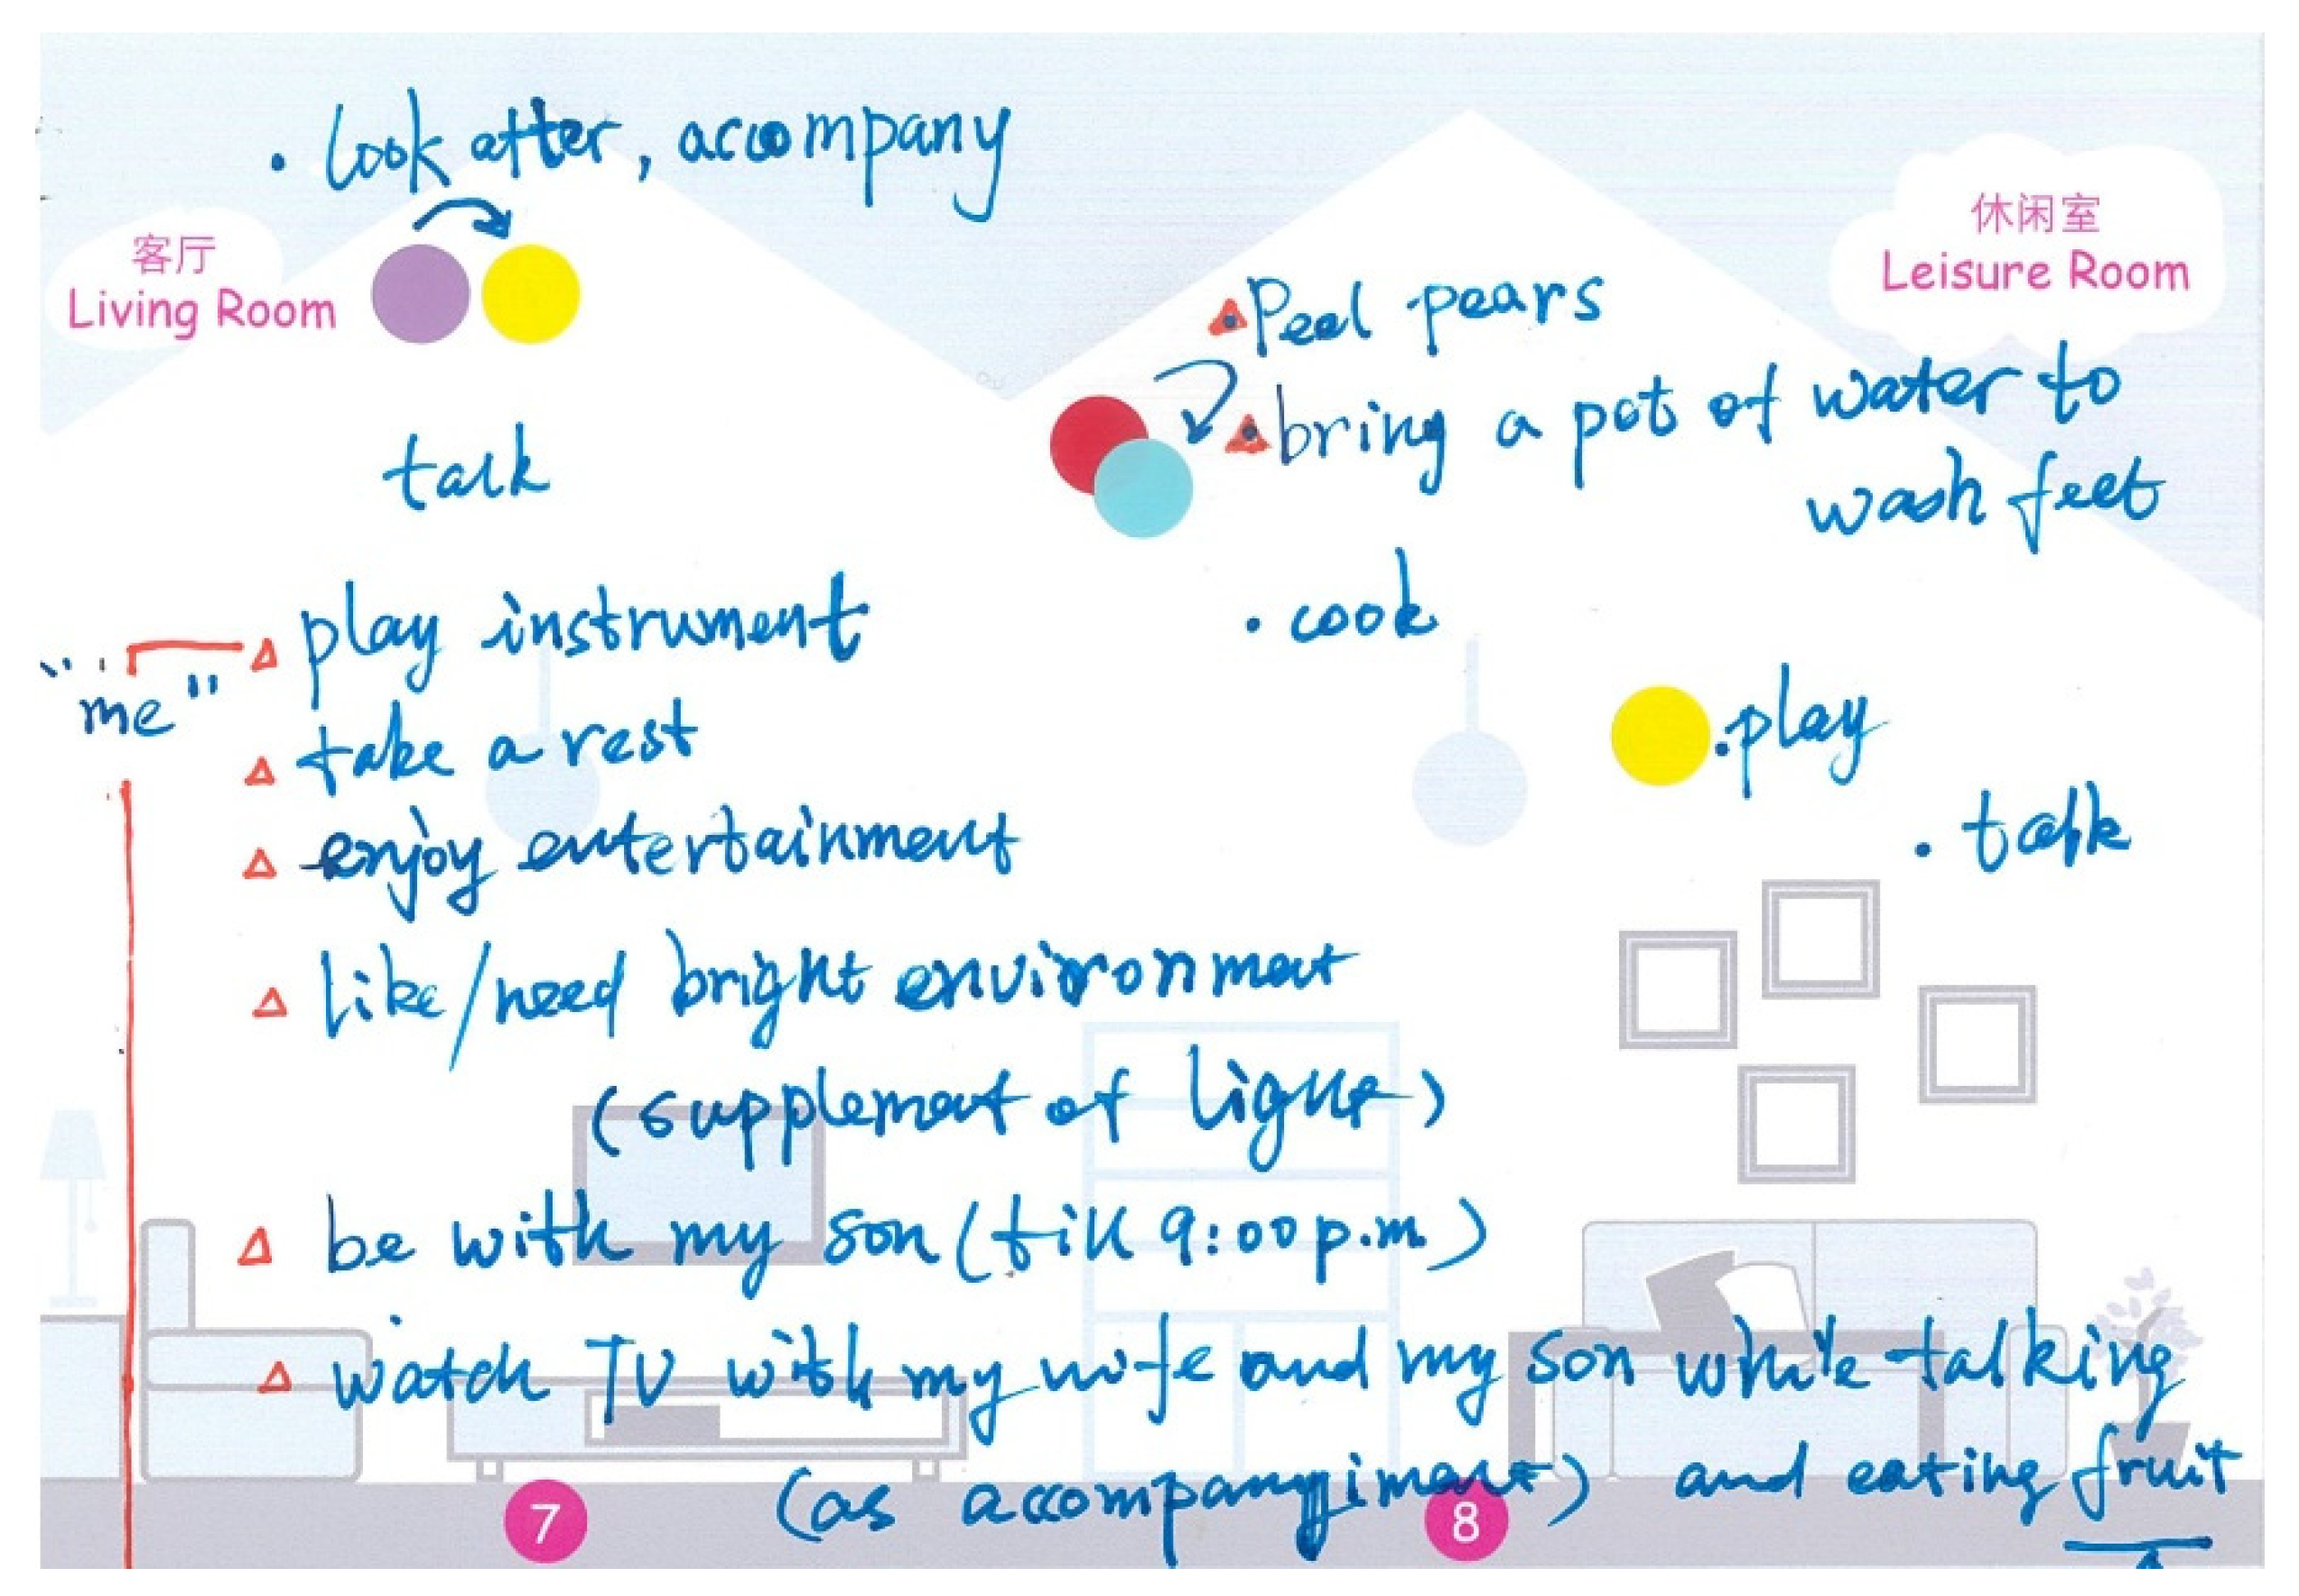 · look after, accompany
客厅
Living Room
talk
休闲室
Leisure Room
Peel pears
bring a pot of water to
wash feet
· cook
· play
· talk
"me"
△ play instrument
△ take a rest
△ enjoy entertainment
△ like/need bright environment
(supplement of light)
△ be with my son (till 9:00 p.m.)
△ watch TV with my wife and my son while talking
(as accompanyiment) and eating fruit
7
8